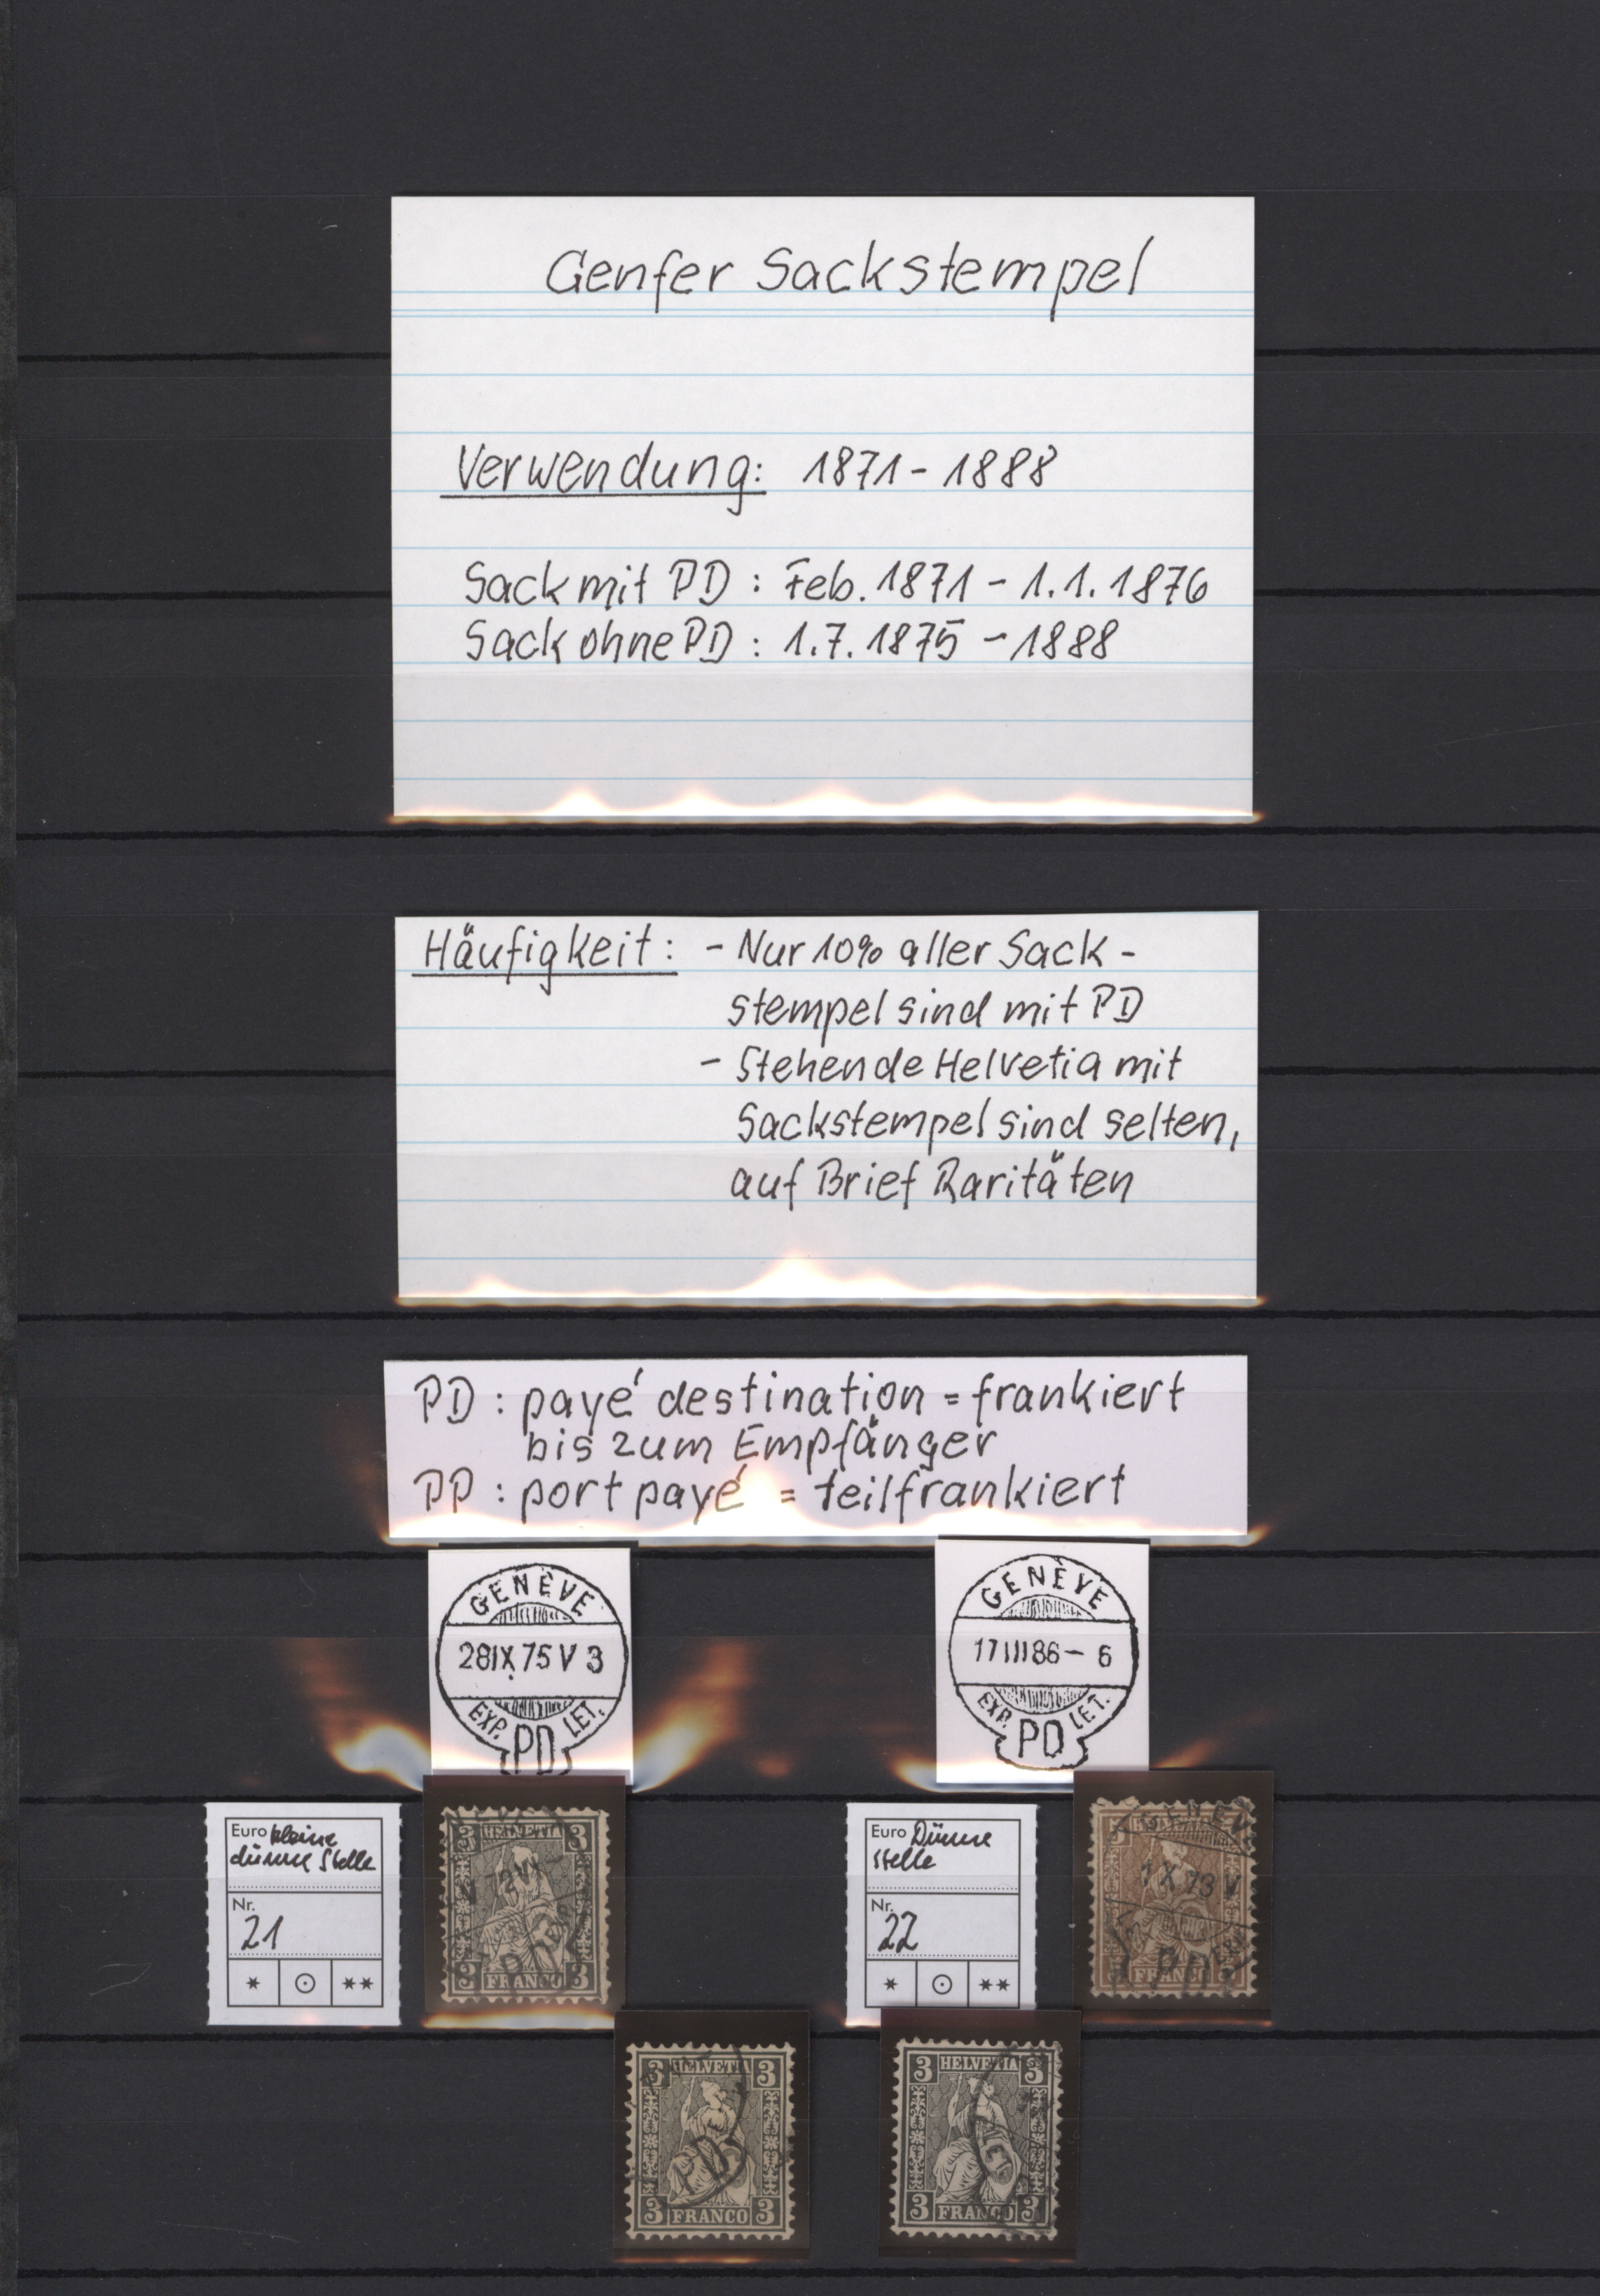 Genfer Sackstempel
Verwendung: 1871 - 1888
Sack mit PD : Feb. 1871 - 1.1.1876
Sack ohne PD : 1.7.1875 - 1888
Häufigkeit: - Nur 10% aller Sack-
stempel sind mit PD
- Stehende Helvetia mit
Sackstempel sind selten,
auf Brief Raritäten
PD : payé destination = frankiert
bis zum Empfänger
PP : port payé = teilfrankiert
GENÈVE
28IX.75 V 3
EXP. LET.
PD
GENÈVE
17III86- 6
EXP. LET.
PD
Euro kleine
dünne Stelle
Nr.
21
* ⊙ **
3 HELVETIA 3
3 FRANCO 3
Euro Dünne
Stelle
Nr.
22
* ⊙ **
GENEV
1 X 73 V
PD
3 HELVETIA 3
PD
3 FRANCO 3
3 HELVETIA 3
3 FRANCO 3